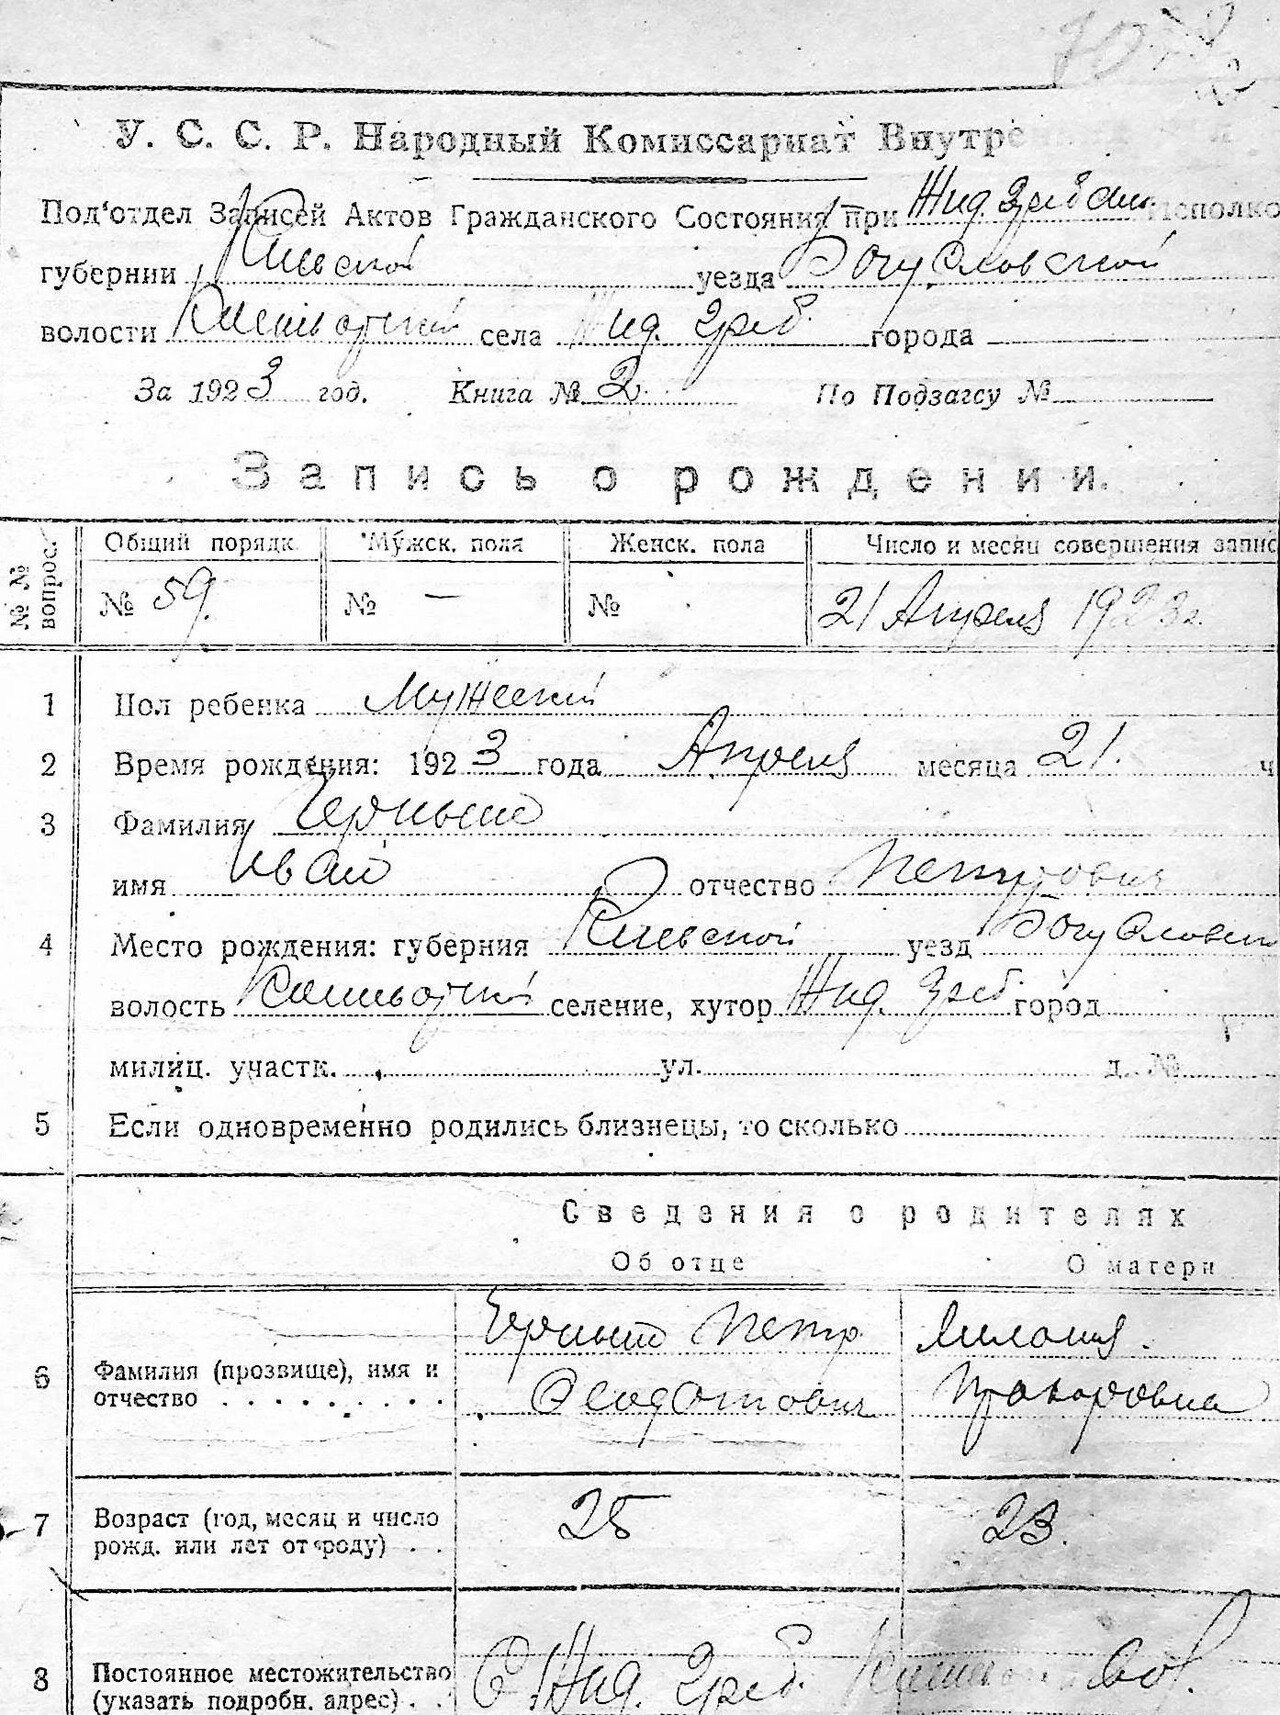 У. С. С. Р. Народный Комиссариат Внутре
Под‘отдел Записей Актов Гражданского Состояния при Жид Греблян. Исполко
губернии Киевской уезда Богуславской
волости села Жид. Греб. города
За 1923 год. Книга № 2 По Подзагсу №
Запись о рождении.
№ № вопрос. Общий порядк. Мужск. пола Женск. пола Число и месяц совершения запис
№ 59. № — № 21 Апреля 1923 г.
1 Пол ребенка Мужеский
2 Время рождения: 1923 года Апреля месяца 21. ч
3 Фамилия Черныш
имя Иван отчество Петрович
4 Место рождения: губерния Киевской уезд Богуславск
волость селение, хутор Жид. Греб. город
милиц. участк. ул. д. №
5 Если одновременно родились близнецы, то сколько
Сведения о родителях
Об отце О матери
6 Фамилия (прозвище), имя и отчество Черныш Петр Феодотович Прохоровна
7 Возраст (год, месяц и число рожд. или лет от роду) 25 23.
8 Постоянное местожительство (указать подробн. адрес) С. Жид. Греб. вол.